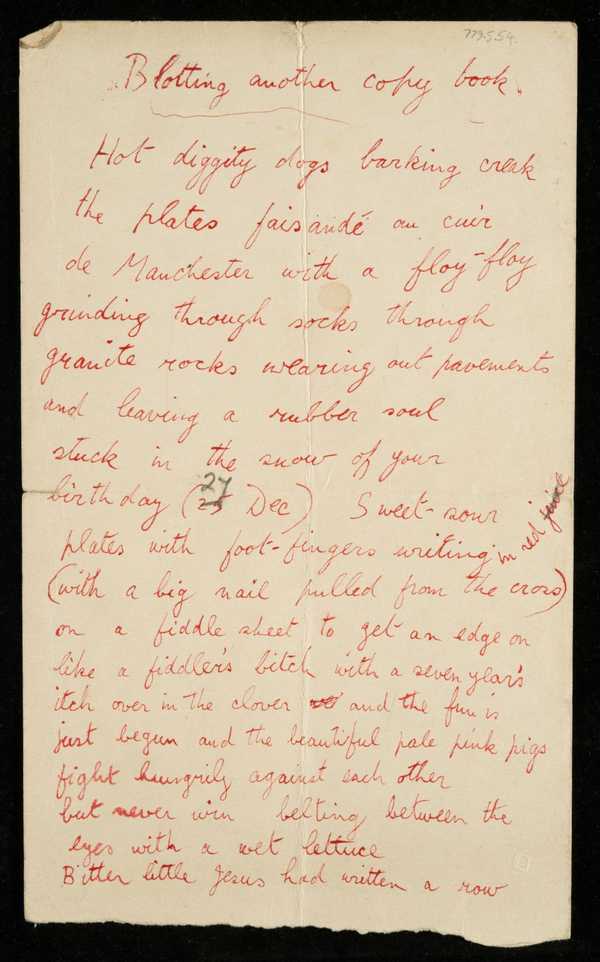 779.5.54.
Blotting another copy book.
Hot diggity dogs barking creak
the plates faisandé au cuir
de Manchester with a floy-floy
grinding through socks through
granite rocks wearing out pavements
and leaving a rubber soul
stuck in the snow of your
birthday (27 Dec) Sweet-sour
plates with foot-fingers writing in red
(with a big nail pulled from the cross)
on a fiddle sheet to get an edge on
like a fiddler's bitch with a seven year's
itch over in the clover and the fun is
just begun and the beautiful pale pink pigs
fight hungrily against each other
but never win belting between the
eyes with a wet lettuce
Bitter little Jesus had written a row